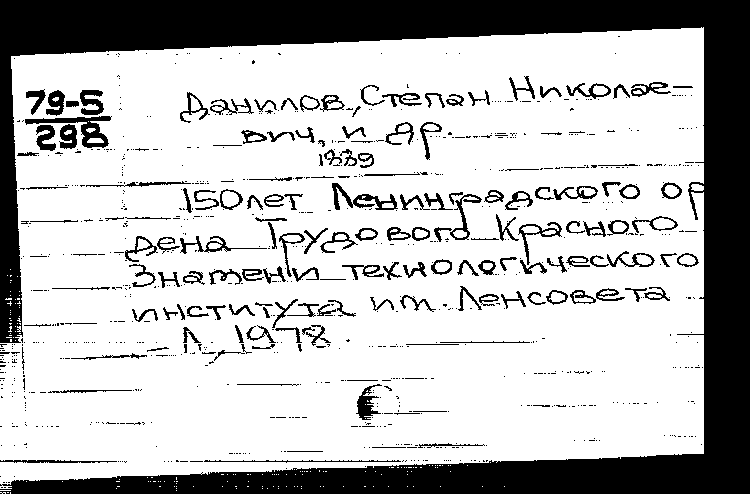 79-5
298
Данилов, Степан Николае-
вич, и др.
1889
150 лет Ленинградского ор
дена Трудового Красного
Знамени технологического
института им. Ленсовета
- Л, 1978.